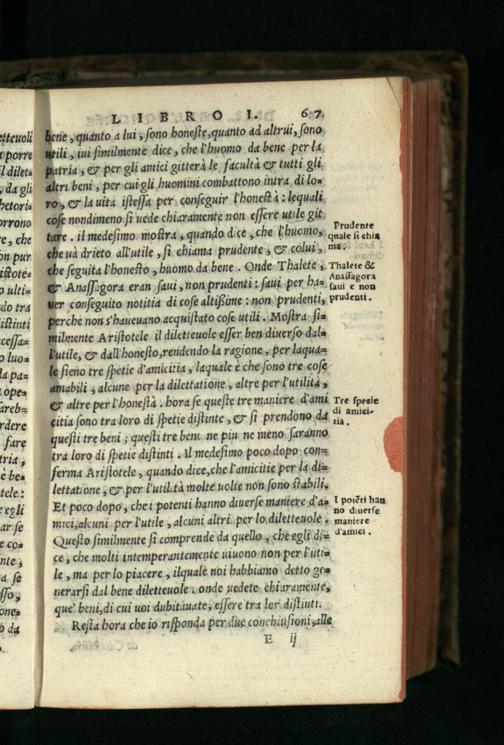 LIBRO I. 67
bene, quanto a lui, sono honeste, quanto ad altrui, sono
utili, iui similmente dice, che l'huomo da bene per la
patria, & per gli amici gitterà le facultà & tutti gli
altri beni, per cui gli huomini combattono intra di lo=
ro, & la uita istessa per conseguir l'honestà: lequali
cose nondimeno si uede chiaramente non essere utile git
tare. il medesimo mostra, quando dice, che l'huomo,
che uà drieto all'utile, si chiama prudente, & colui,
che seguita l'honesto, huomo da bene. Onde Thalete,
& Anassagora eran saui, non prudenti: saui per ha=
uer conseguito notitia di cose altissime: non prudenti,
perche non s'haueuano acquistato cose utili. Mostra si=
milmente Aristotele il diletteuole esser ben diuerso dal=
l'utile, & dall'honesto, rendendo la ragione, per laqua=
le sieno tre spetie d'amicitia, laquale è che sono tre cose
amabili, alcune per la dilettatione, altre per l'utilità,
& altre per l'honestà. hora se queste tre maniere d'ami
citia sono tra loro di spetie distinte, & si prendono da
questi tre beni; questi tre beni ne piu ne meno saranno
tra loro di spetie distinti. Il medesimo poco dopo con=
ferma Aristotele, quando dice, che l'amicitie per la di=
lettatione, & per l'utilità molte uolte non sono stabili.
Et poco dopò, che i potenti hanno diuerse maniere d'a=
mici, alcuni per l'utile, alcuni altri per lo diletteuole.
Questo similmente si comprende da quello, che egli di=
ce, che molti intemperantemente uiuono non per l'uti=
le, ma per lo piacere, ilquale noi habbiamo detto ge=
nerarsi dal bene diletteuole. onde uedete chiaramente,
que' beni, di cui uoi dubitauate, essere tra lor distinti.
Resta hora che io risponda per due conchiusioni, alle
E ij
Prudente
quale si chia
ma.
Thalete &
Anassagora
saui e non
prudenti.
Tre spetie
di amici-
tia.
I potēti han
no diuerse
maniere
d'amici.